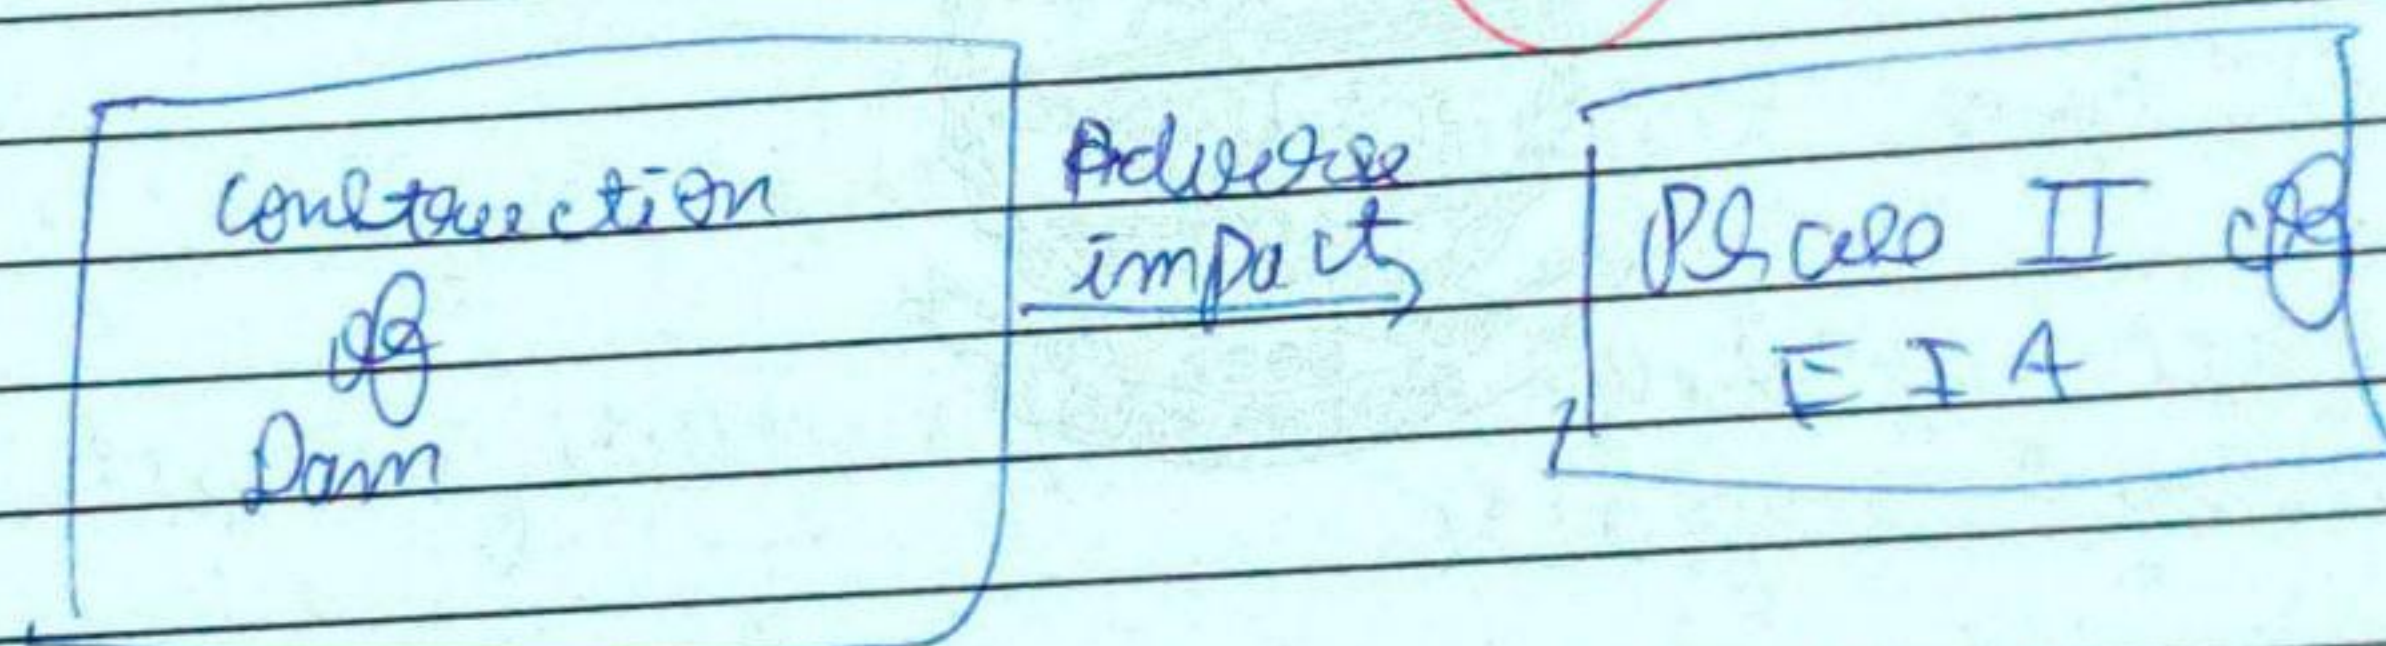 Construction
of
Dam
Adverse
impact
Phase II of
EIA